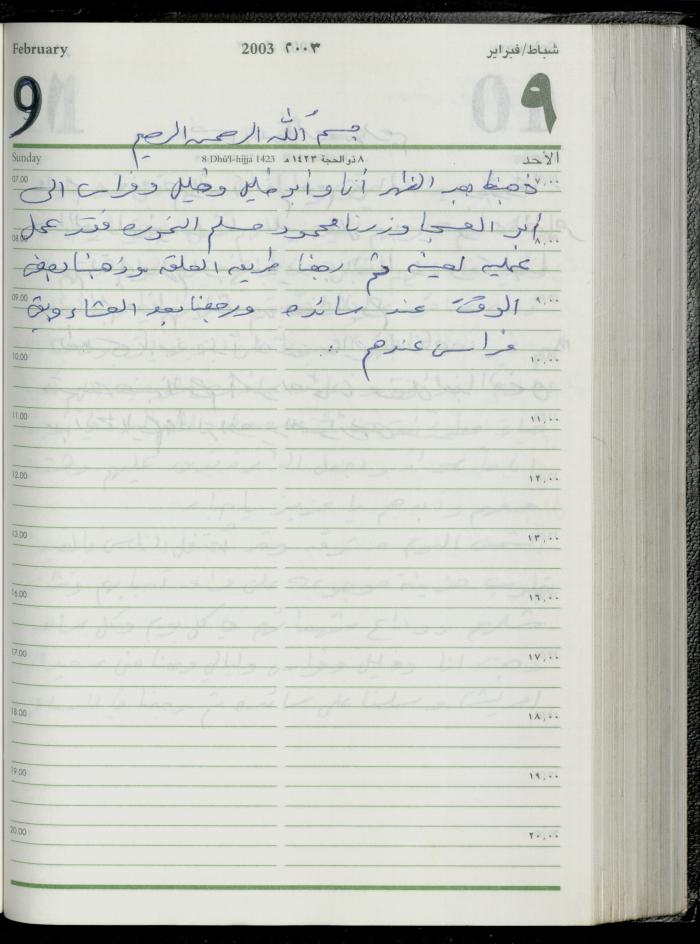 February 2003 ٢٠٠٣ شباط/فبراير
9 ٩
بسم الله الرحمن الرحيم
Sunday 8 Dhū'l-hijja 1423 ٨ ذو الحجة ١٤٢٣ هـ الأحد
07.00 ذهبنا بعد الظهر أنا وأبو خليل وخليل وفراس الى ٧,٠٠
08.00 أبو العسجا وزرنا محمود مسلم فقد عمل ٨,٠٠
عملية لعينه ثم رجعنا طريق الحلقه وذهبنا بعض
09.00 الوقت عند سائده ورجعنا بعد العشاء وبقي ٩,٠٠
فراس عندهم ..
10.00 ١٠,٠٠
11.00 ١١,٠٠
12.00 ١٢,٠٠
13.00 ١٣,٠٠
16.00 ١٦,٠٠
17.00 ١٧,٠٠
18.00 ١٨,٠٠
19.00 ١٩,٠٠
20.00 ٢٠,٠٠